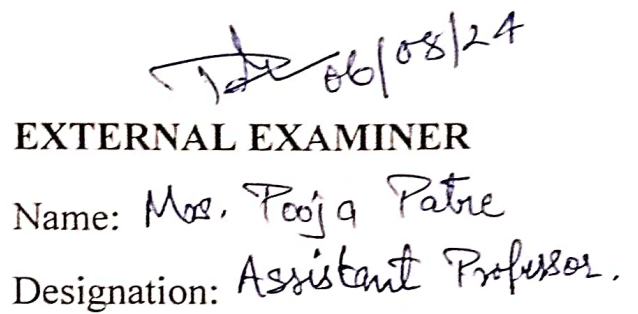 06/08/24
EXTERNAL EXAMINER
Name: Mrs. Pooja Patre
Designation: Assistant Professor.